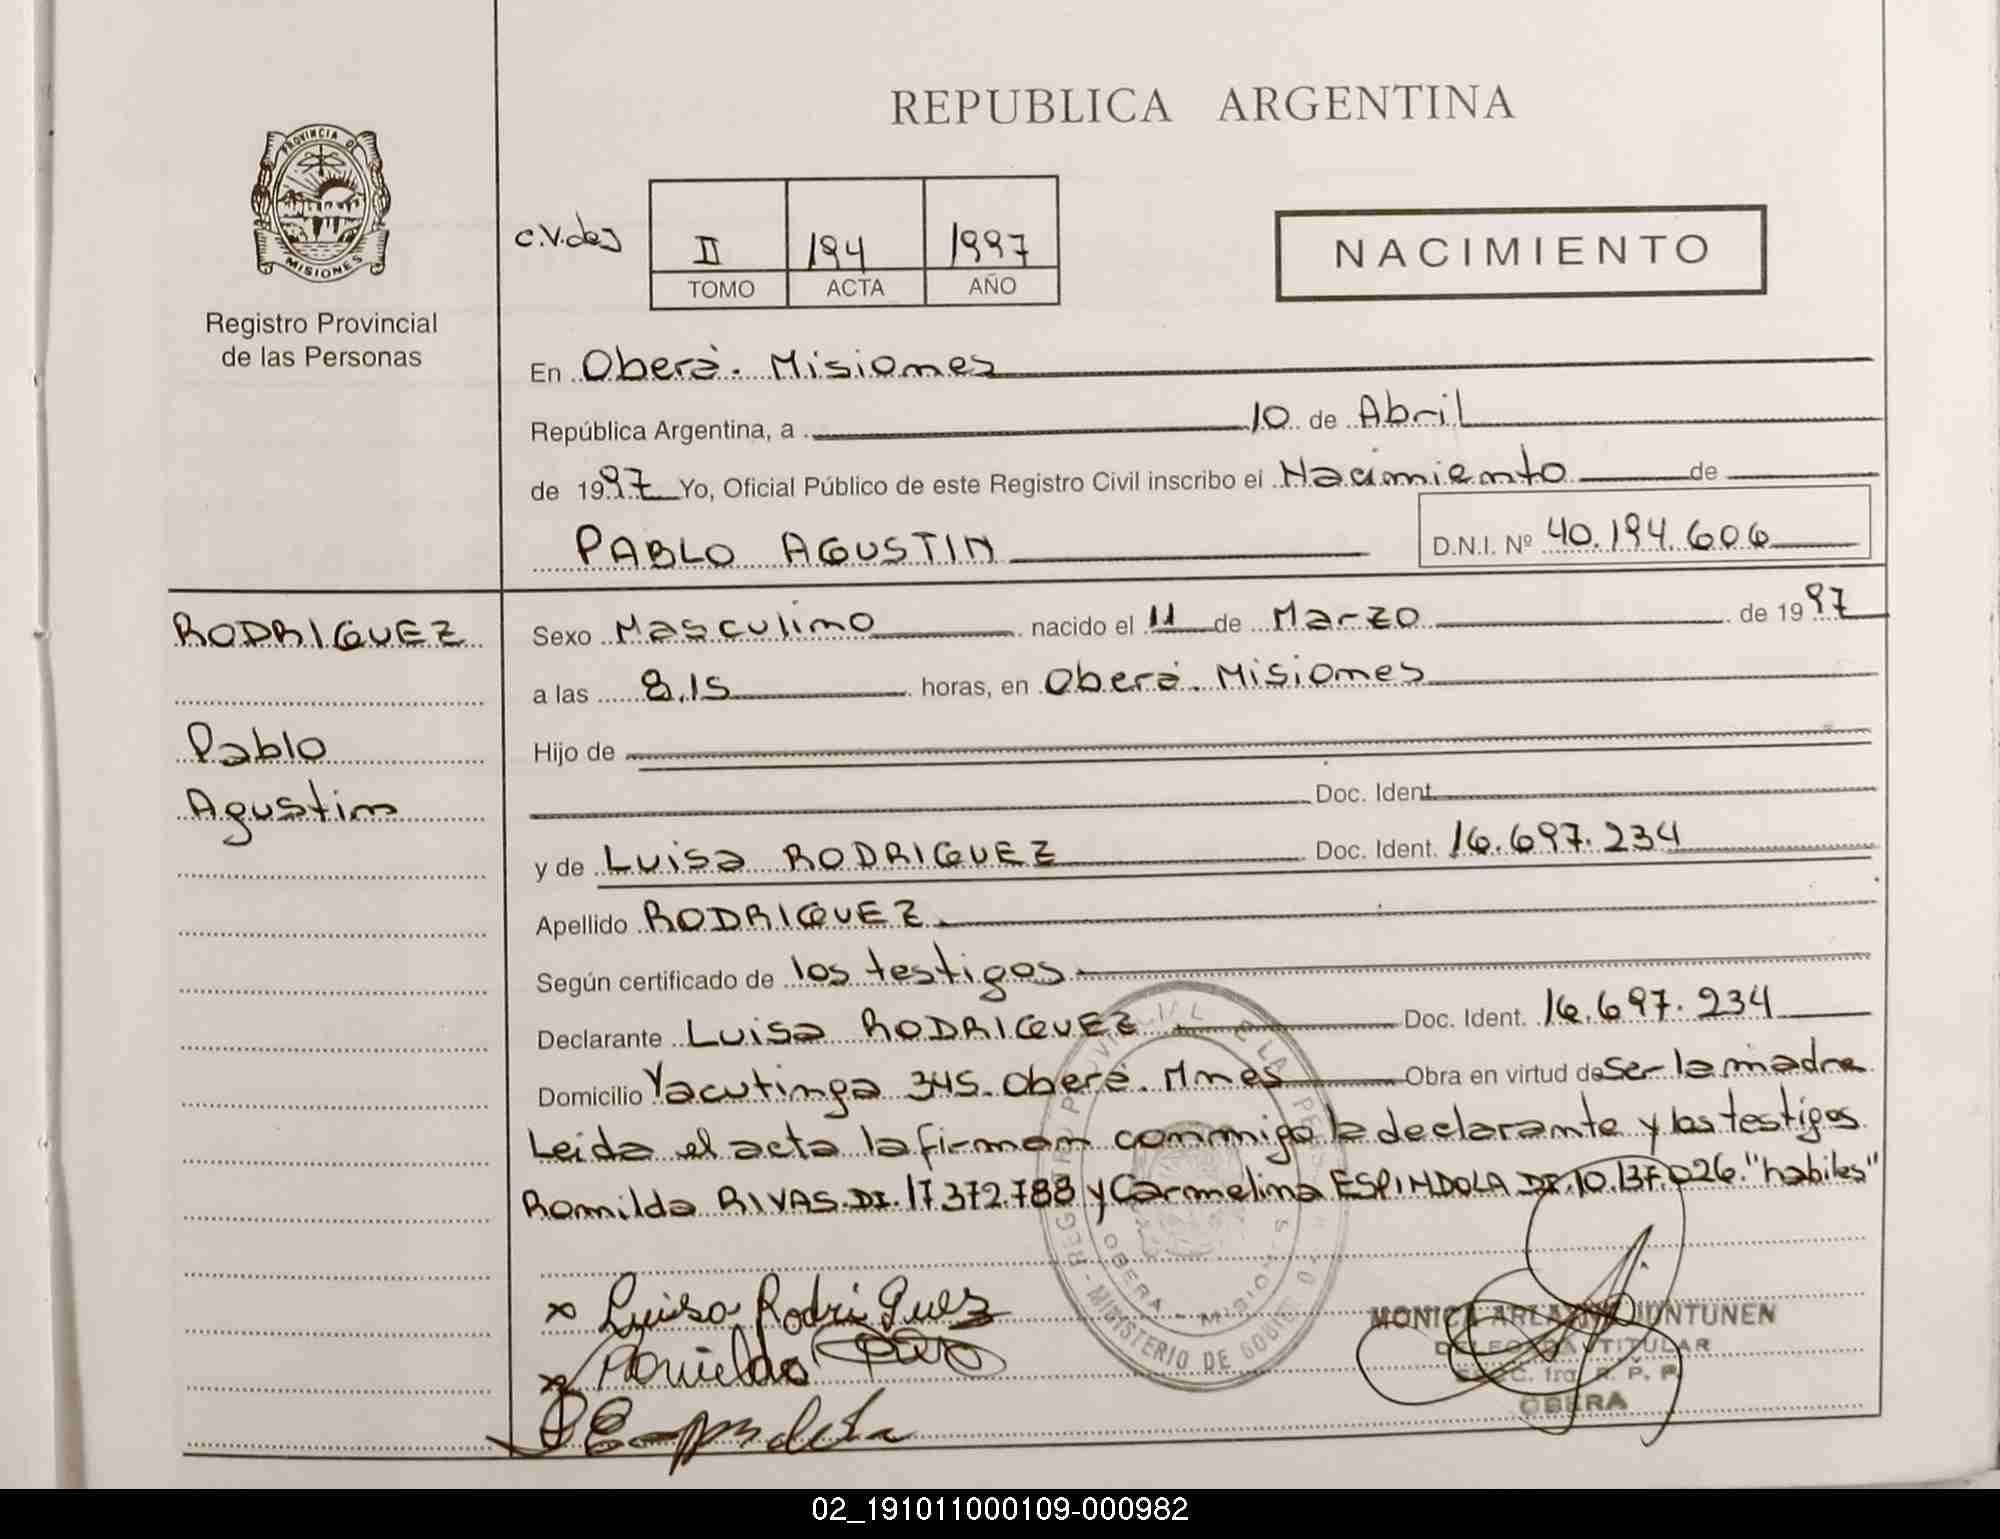 REPUBLICA ARGENTINA
PROVINCIA DE
MISIONES
Registro Provincial
de las Personas
II 194 1997
TOMO ACTA AÑO
NACIMIENTO
En Oberá. Misiones
República Argentina, a 10 de Abril
de 1997 Yo, Oficial Público de este Registro Civil inscribo el Nacimiento de
PABLO AGUSTIN D.N.I. Nº 40.194.606
RODRIGUEZ
Pablo
Agustin
Sexo Masculino nacido el 11 de Marzo de 1997
a las 8.15 horas, en Oberá. Misiones
Hijo de
Doc. Ident.
y de Luisa RODRIGUEZ Doc. Ident. 16.697.234
Apellido RODRIGUEZ
Según certificado de los testigos
Declarante Luisa RODRIGUEZ Doc. Ident. 16.697.234
Domicilio Yacutinga 345. Oberá. Mnes Obra en virtud de ser la madre
Leida el acta la firman conmigo la declarante y los testigos
Romilda RIVAS. DI. 17.372.788 y Carmelina ESPINDOLA DI. 10.137.026. "habiles"
Luisa Rodriguez
MINISTERIO DE
OBERA - MISIONES
MONICA JUNTUNEN
TITULAR
R. P. P.
OBERA
02_191011000109-000982